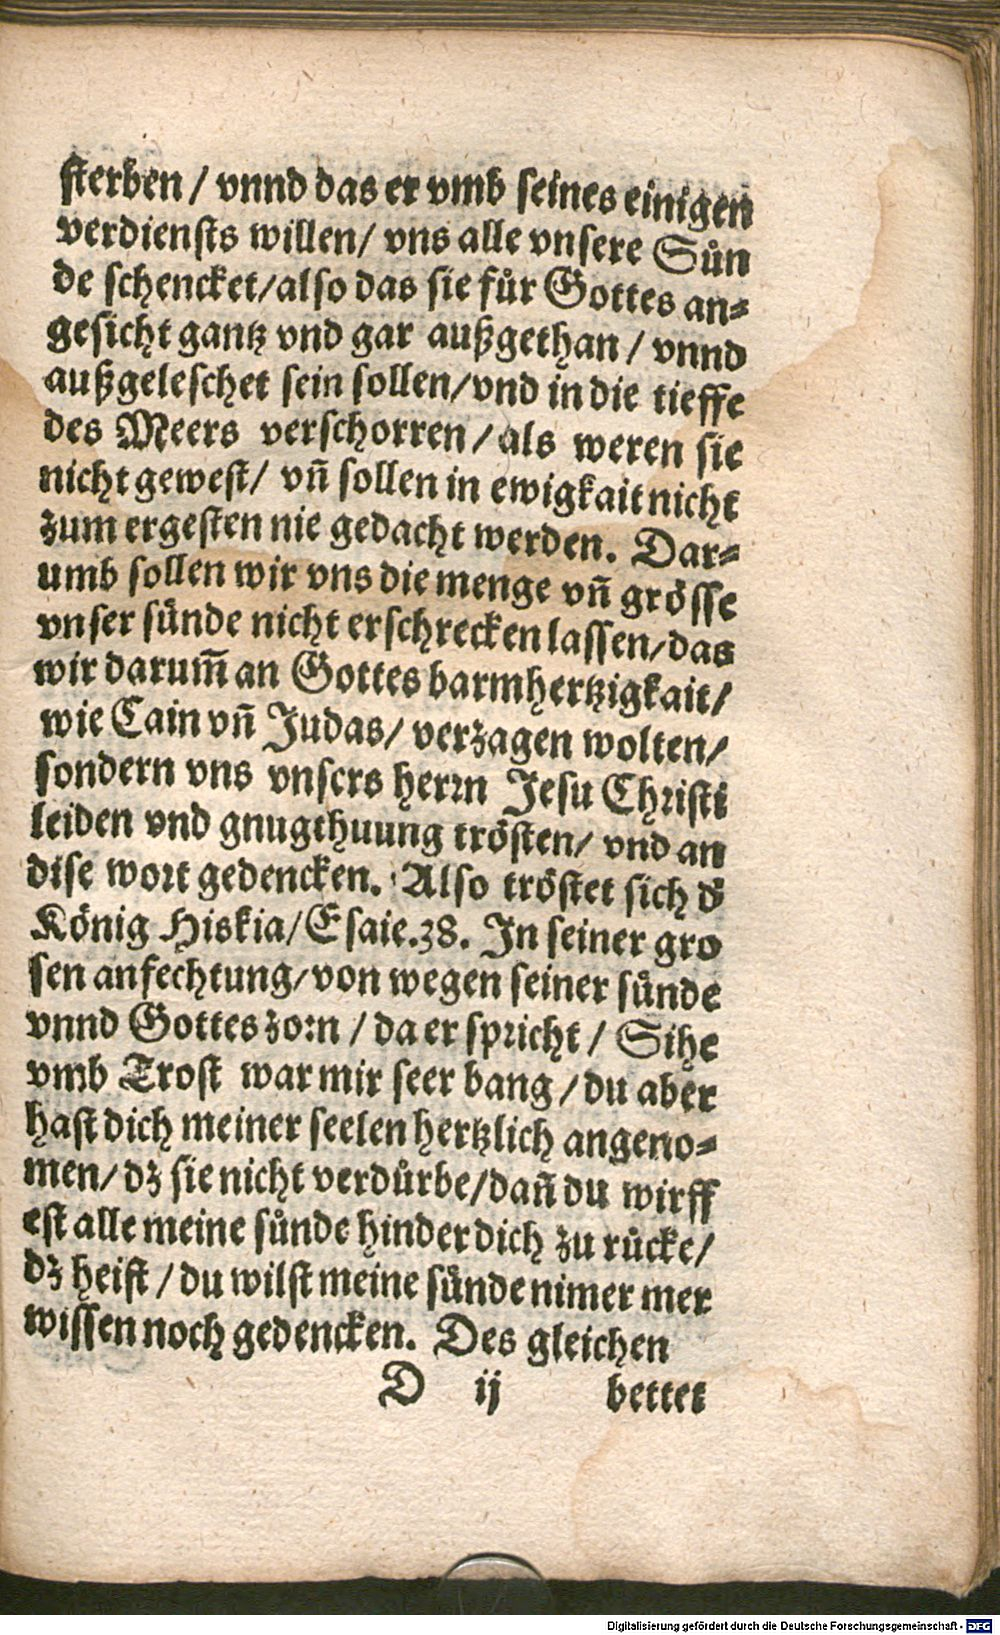 sterben / vnnd das er vmb seines einigen
verdiensts willen / vns alle vnsere Sůn
de schencket / also das sie fůr Gottes an⸗
gesicht gantz vnd gar außgethan / vnnd
außgeleschet sein sollen / vnd in die tieffe
des Meers verschorren / als weren sie
nicht gewest / vñ sollen in ewigkait nicht
zum ergesten nie gedacht werden. Dar⸗
umb sollen wir vns die menge vñ grösse
vnser sůnde nicht erschrecken lassen / das
wir darum̃ an Gottes barmhertzigkait /
wie Cain vñ Judas / verzagen wolten /
sondern vns vnsers herrn Jesu Christi
leiden vnd gnugthuung trösten / vnd an
dise wort gedencken. Also tröstet sich d̕
König Hiskia / Esaie. 38. In seiner gro
sen anfechtung / von wegen seiner sůnde
vnnd Gottes zorn / da er spricht / Sihe
vmb Trost war mir seer bang / du aber
hast dich meiner seelen hertzlich angeno⸗
men / dz sie nicht verdůrbe / dañ du wirff
est alle meine sůnde hinder dich zu růcke /
dz heist / du wilst meine sůnde nimer mer
wissen noch gedencken. Des gleichen
D ij bettet
Digitalisierung gefördert durch die Deutsche Forschungsgemeinschaft - DFG